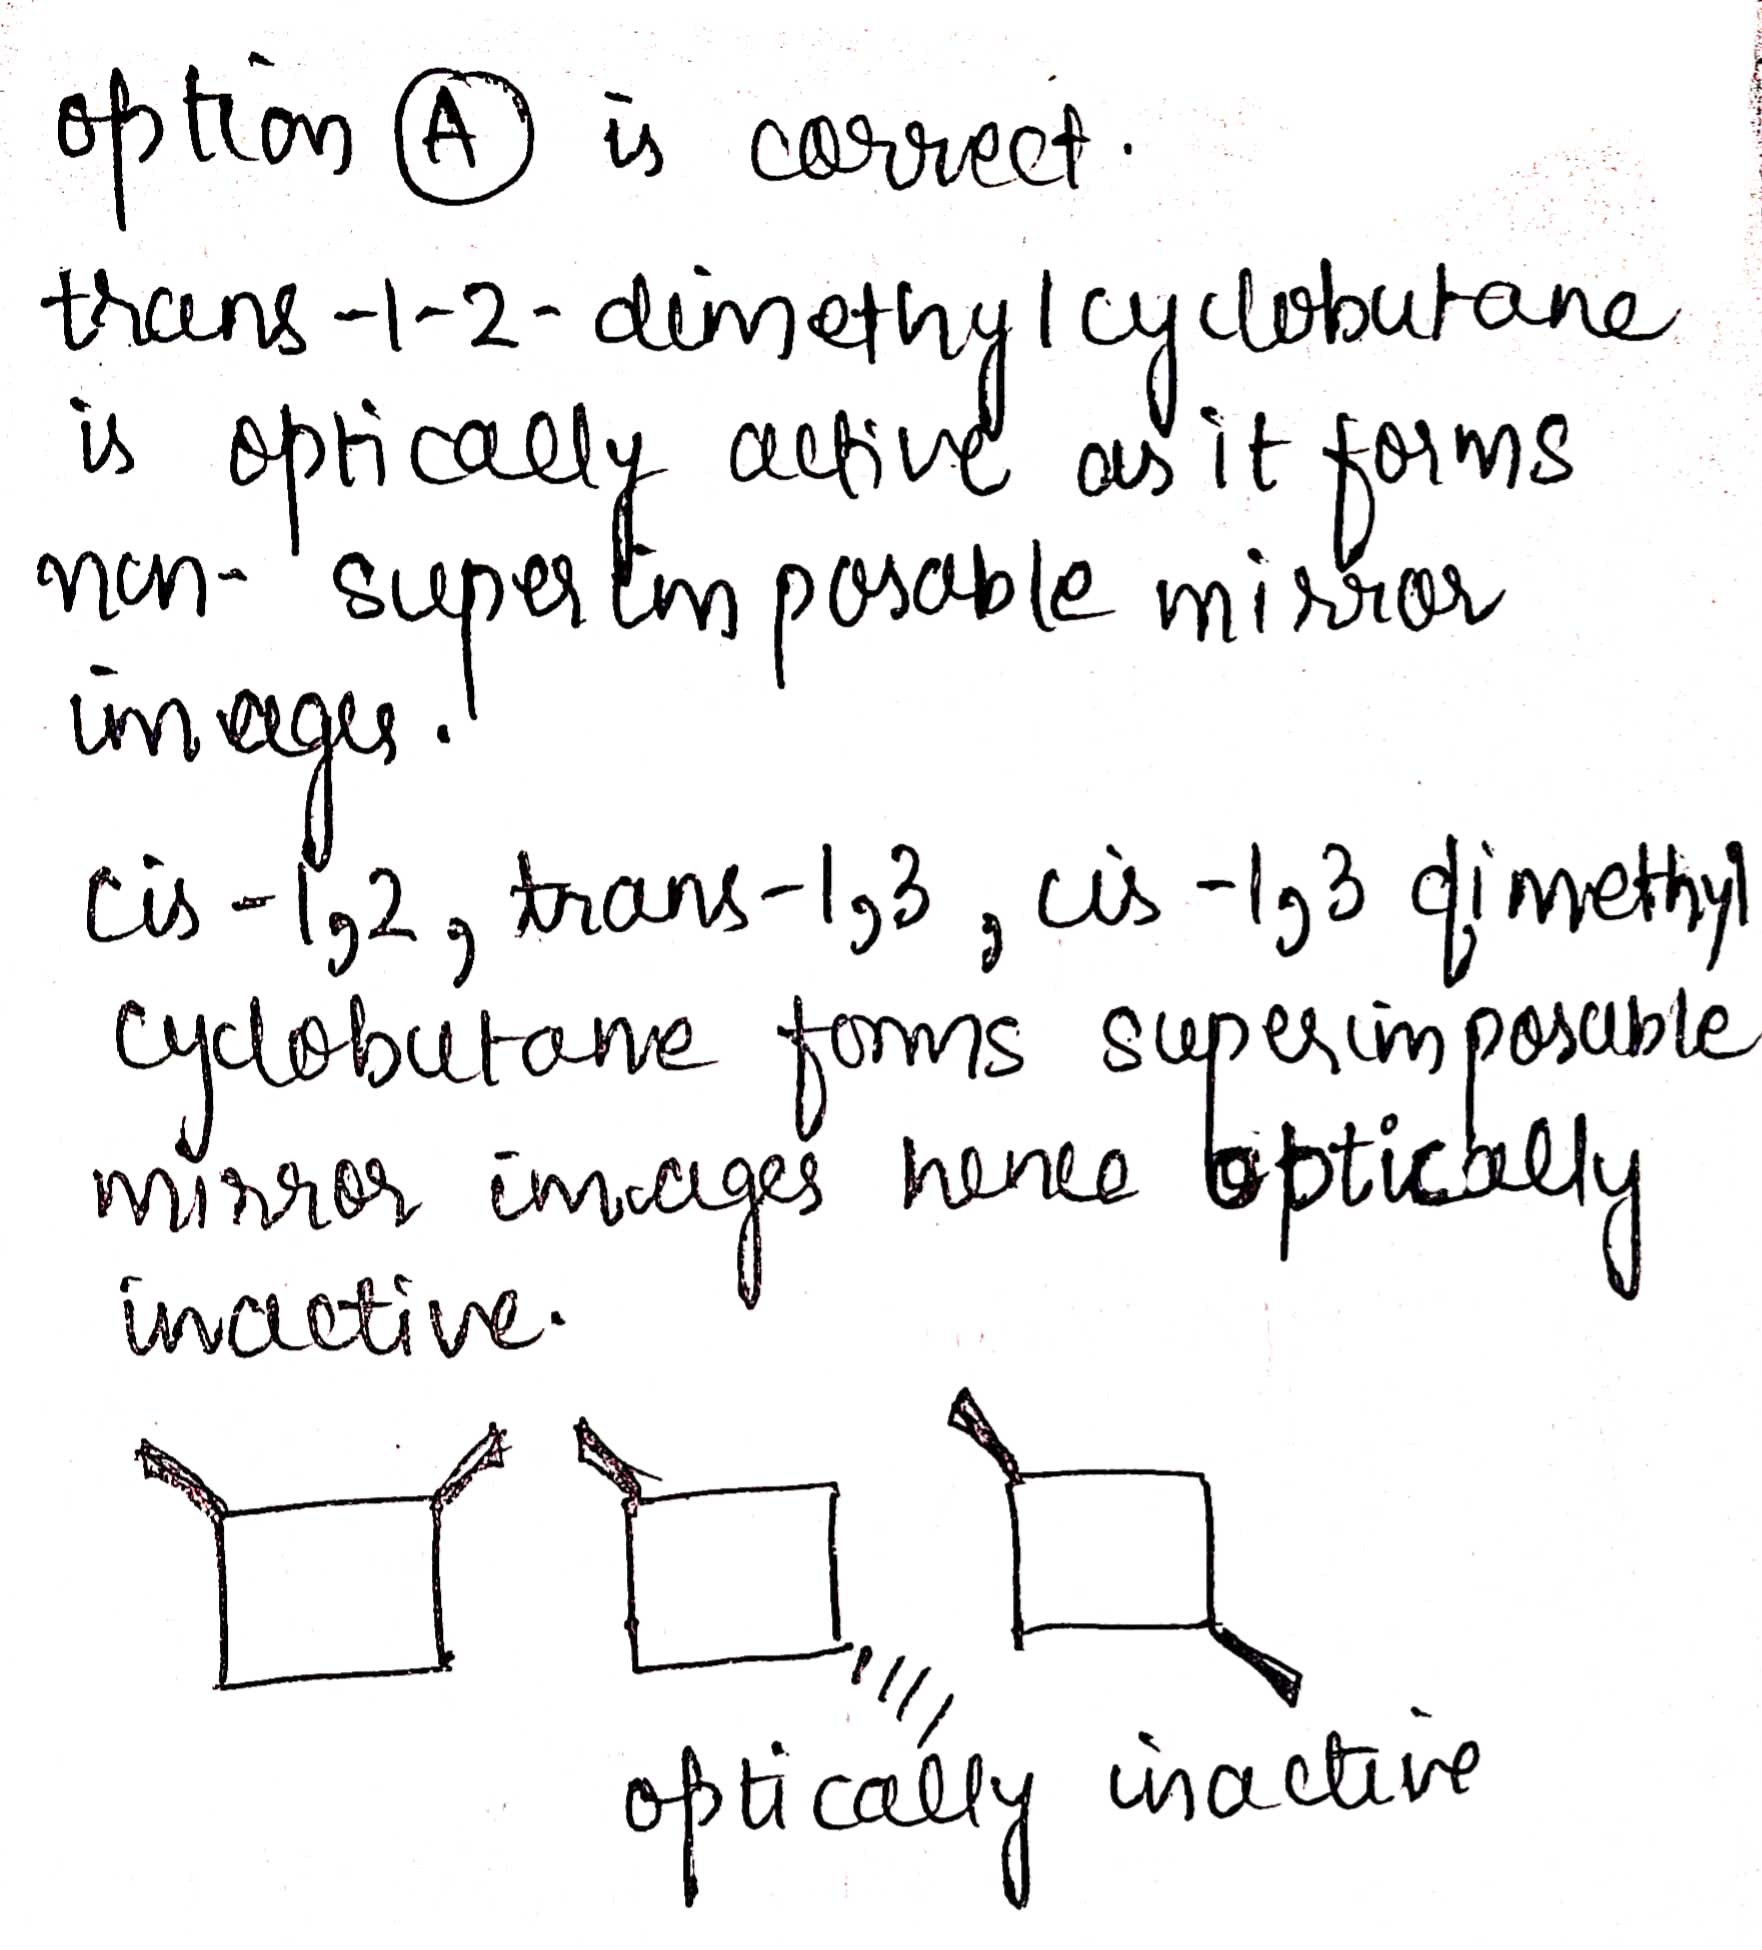 option A is correct.
trans-1-2-dimethylcyclobutane
is optically active as it forms
non-superimposable mirror
images.
cis-1,2, trans-1,3, cis-1,3 dimethyl
cyclobutane forms superimposable
mirror images hence optically
inactive.
optically inactive